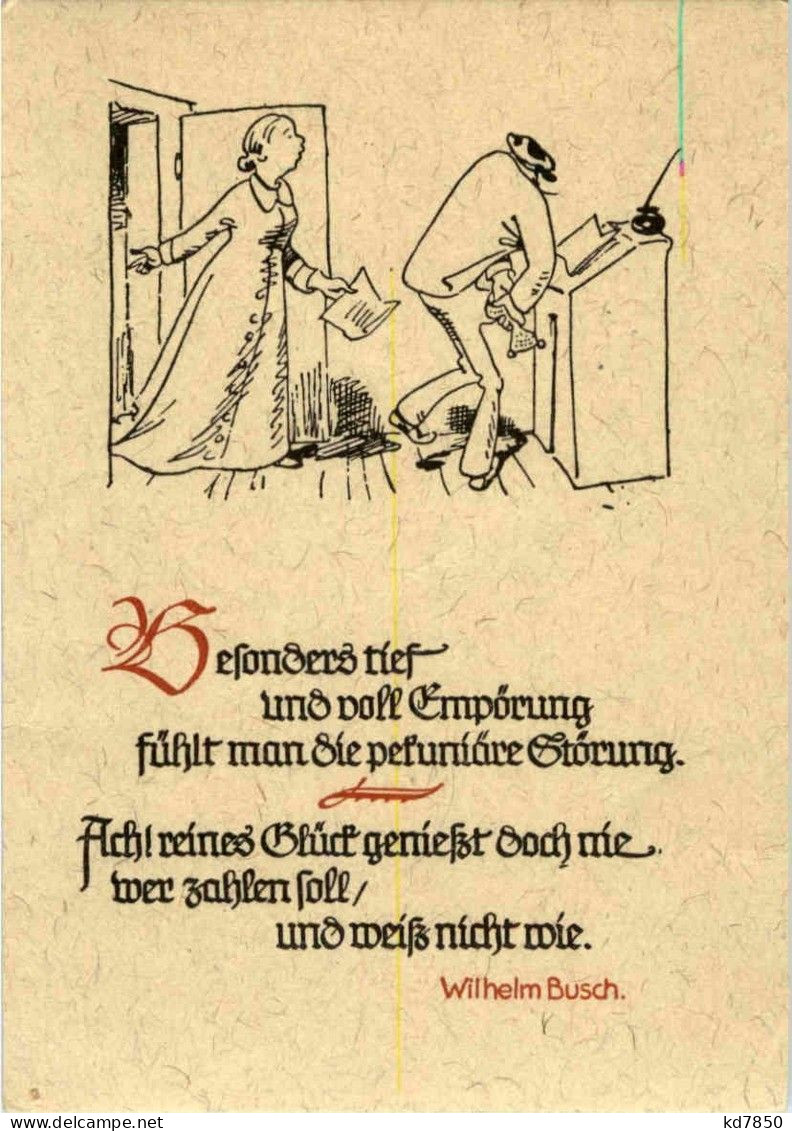 Besonders tief
und voll Empörung
fühlt man die pekuniäre Störung.
Ach! reines Glück genießt doch nie
wer zahlen soll/
und weiß nicht wie.
Wilhelm Busch.
delcampe.net
kd7850